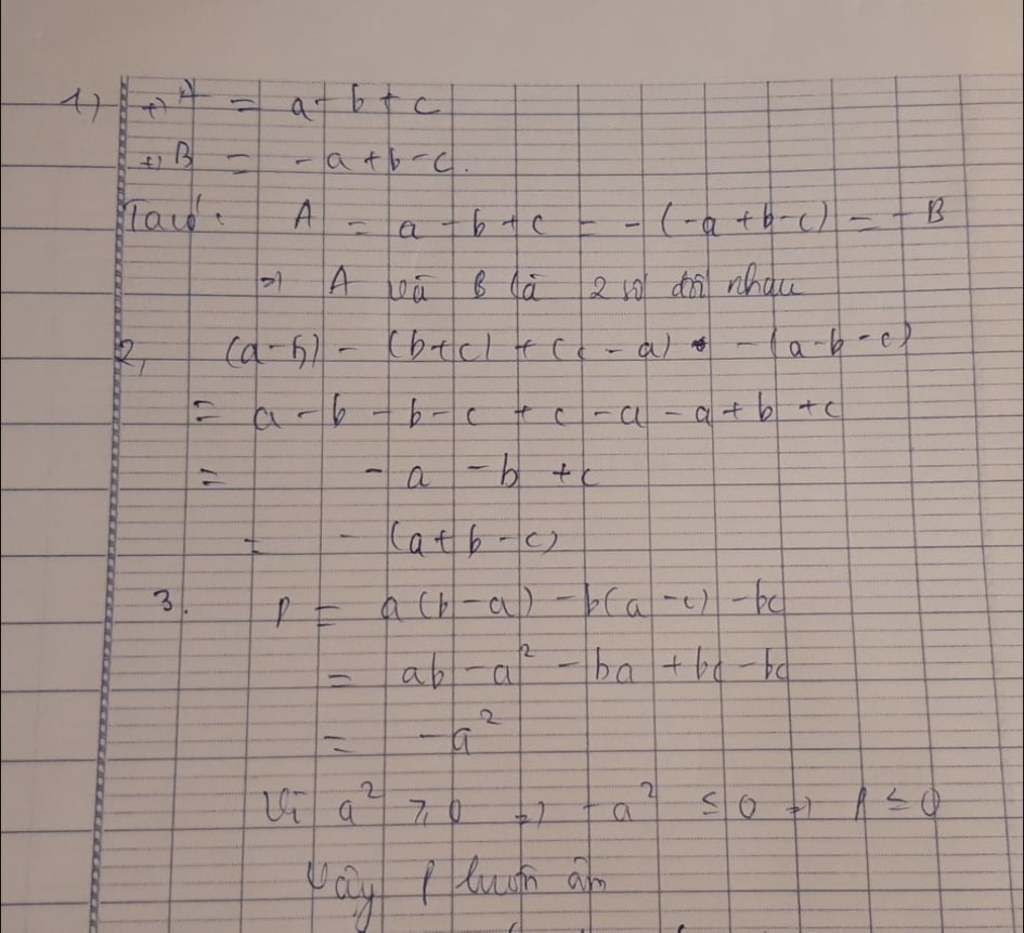 1) +) A = a - b + c
+) B = - a + b - c.
Ta có: A = a - b + c = - (-a + b - c) = - B
=> A và B là 2 số đối nhau
2, (a - b) - (b + c) + (c - a) - (a - b - c)
= a - b - b - c + c - a - a + b + c
= - a - b + c
= - (a + b - c)
3. P = a(b - a) - b(a - c) - bc
= ab - a² - ba + bc - bc
= - a²
Vì a² ≥ 0 => - a² ≤ 0 => P ≤ 0
Vậy P luôn âm